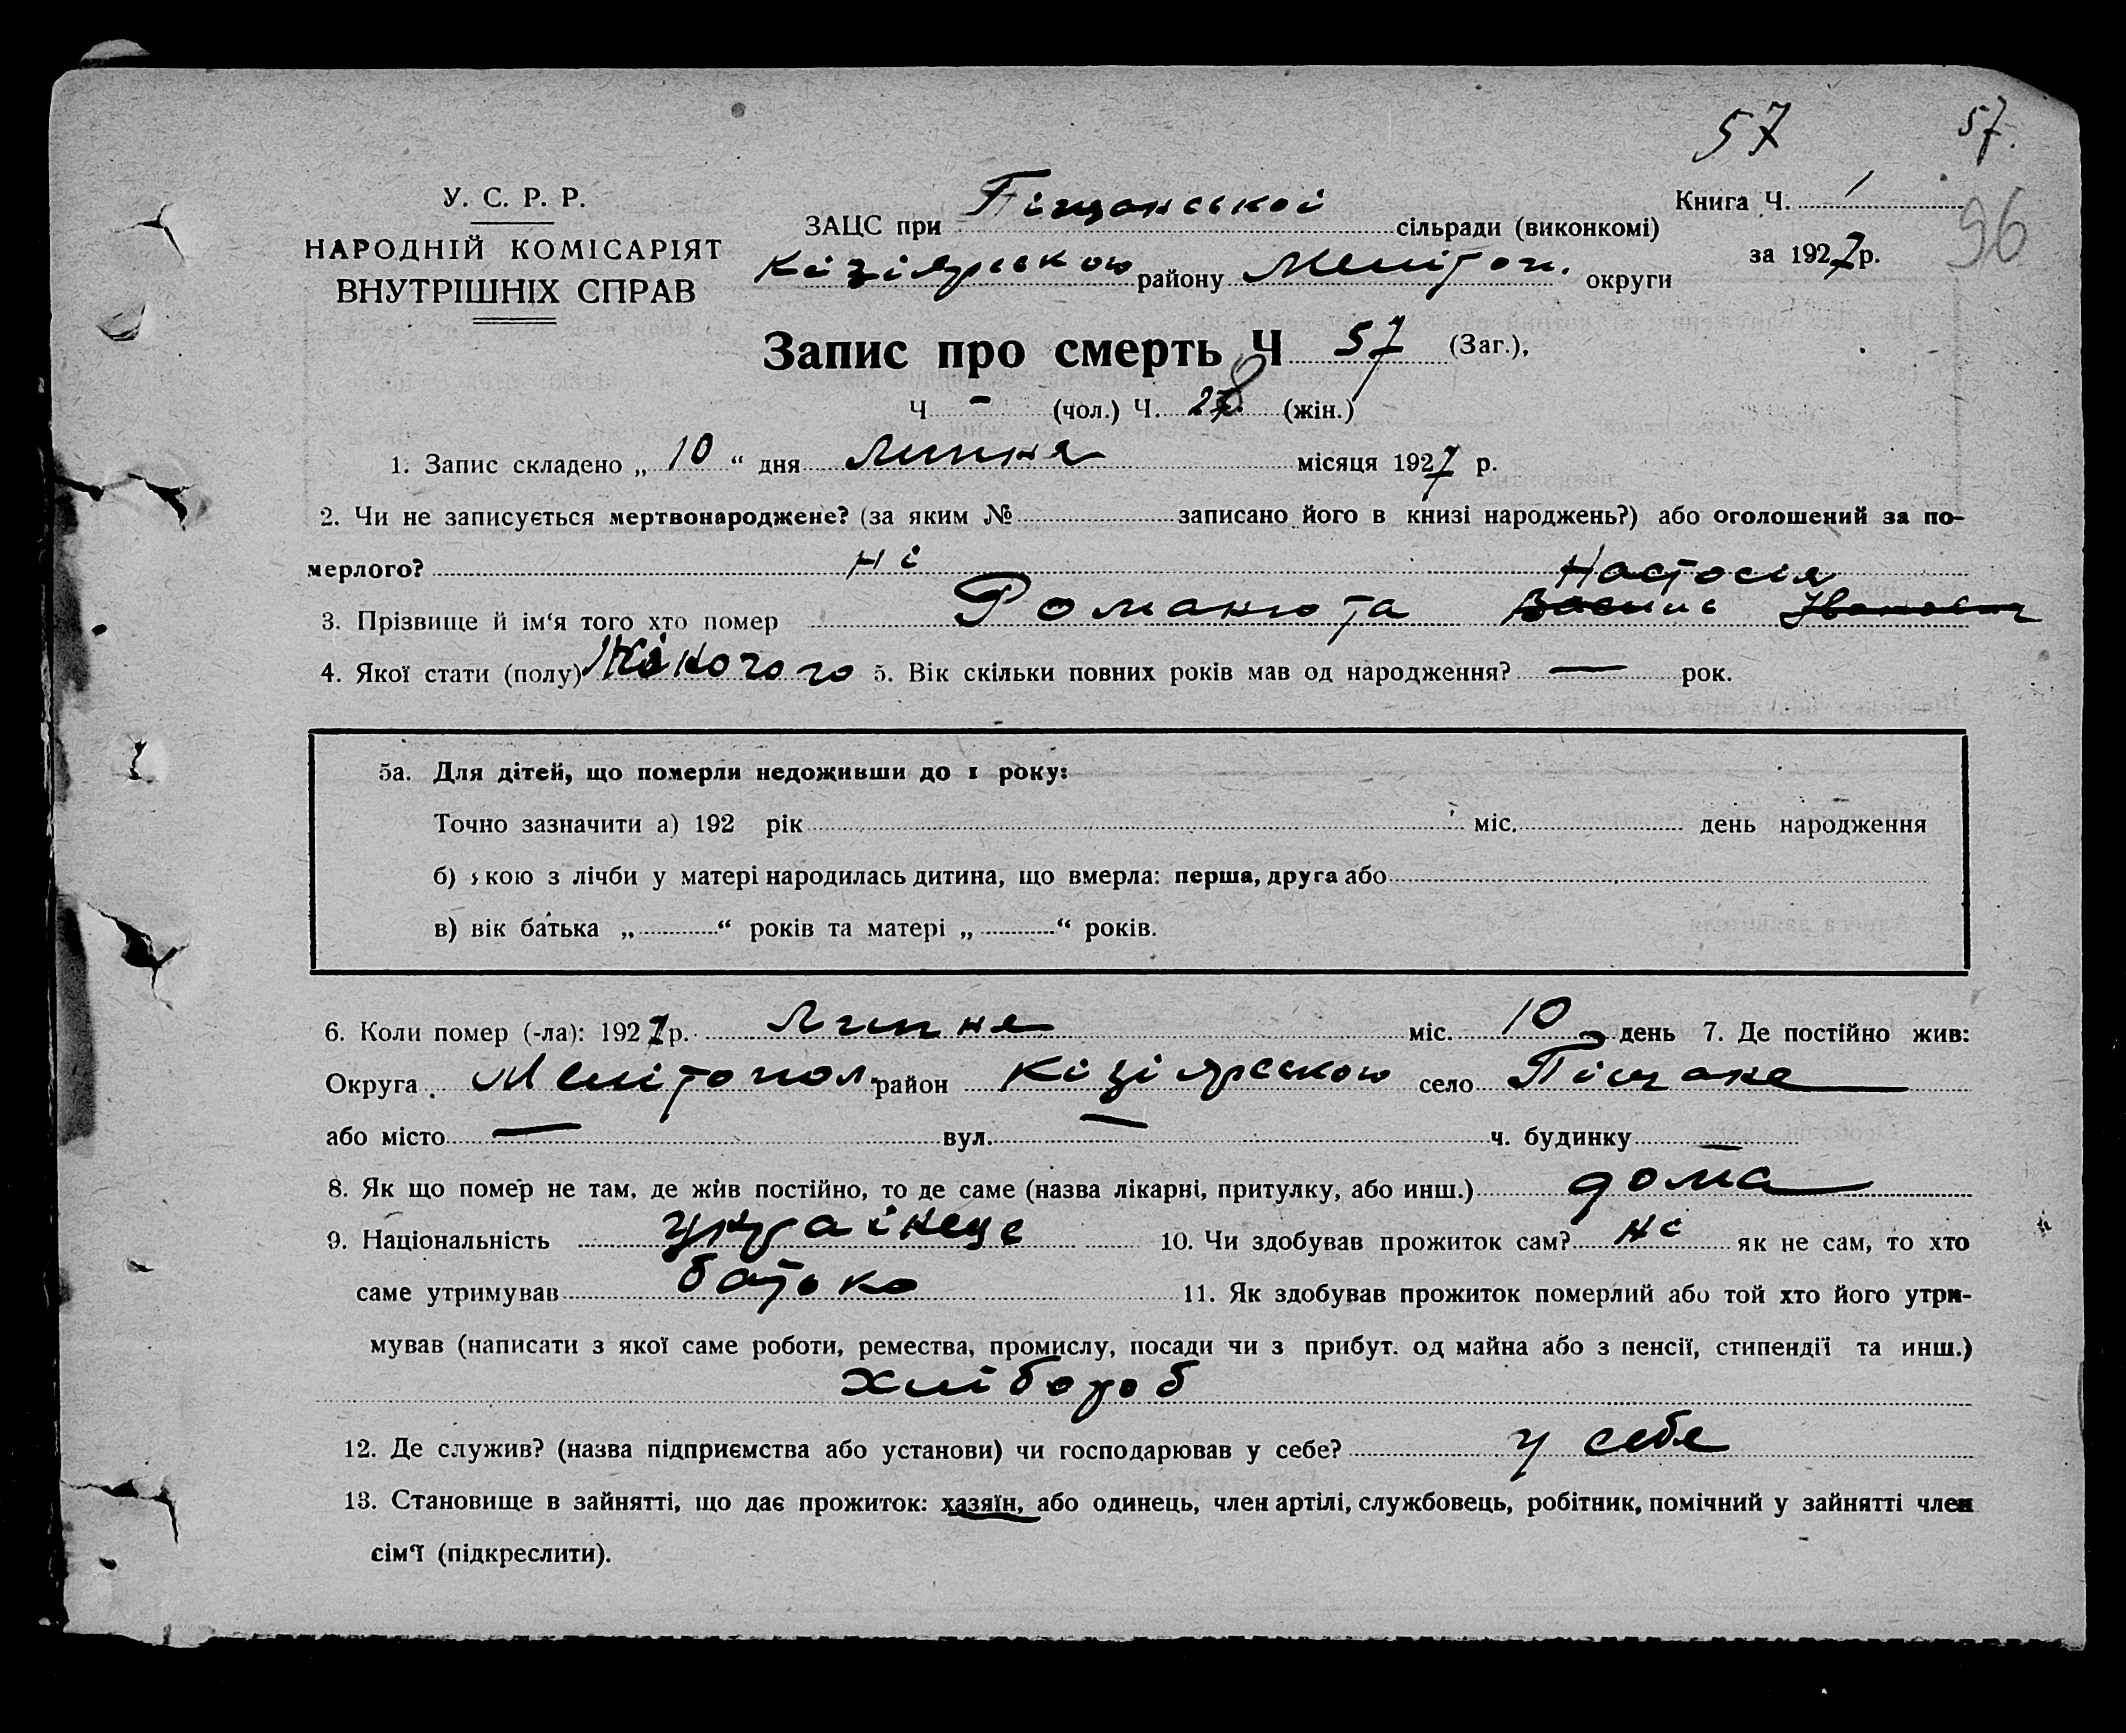 57 57.
96
У. С. Р. Р.
НАРОДНІЙ КОМІСАРІЯТ
ВНУТРІШНІХ СПРАВ
ЗАЦС при Піщанської сільради (виконкомі)
Кізіярською району Мелітоп. округи
Книга Ч. 1
за 1927 р.
Запис про смерть Ч 57 (Заг.),
Ч - (чол.) Ч. 28 (жін.)
1. Запис складено „ 10 “ дня Липня місяця 1927 р.
2. Чи не записується мертвонароджене? (за яким № записано його в книзі народжень?) або оголошений за по-
мерлого? ні
Настосія
3. Прізвище й ім‘я того хто помер Романюта Василь Іванович
4. Якої стати (полу) Жіночого 5. Вік скільки повних років мав од народження? — рок.
5а. Для дітей, що померли недоживши до 1 року:
Точно зазначити а) 192 рік міс. день народження
б) якою з лічби у матері народилась дитина, що вмерла: перша, друга або
в) вік батька „ “ років та матері „ “ років.
6. Коли помер (-ла): 1927 р. Липня міс. 10 день 7. Де постійно жив:
Округа Мелітопол. район Кізіярською село Піщане
або місто — вул. — ч. будинку —
8. Як що помер не там, де жив постійно, то де саме (назва лікарні, притулку, або инш.) дома
9. Національність українець 10. Чи здобував прожиток сам? ні як не сам, то хто
саме утримував батько 11. Як здобував прожиток померлий або той хто його утри-
мував (написати з якої саме роботи, ремества, промислу, посади чи з прибут. од майна або з пенсії, стипендії та инш.)
хлібороб
12. Де служив? (назва підприємства або установи) чи господарював у себе? у себе
13. Становище в зайнятті, що дає прожиток: хазяїн, або одинець, член артілі, службовець, робітник, помічний у зайнятті член
сім‘ї (підкреслити).